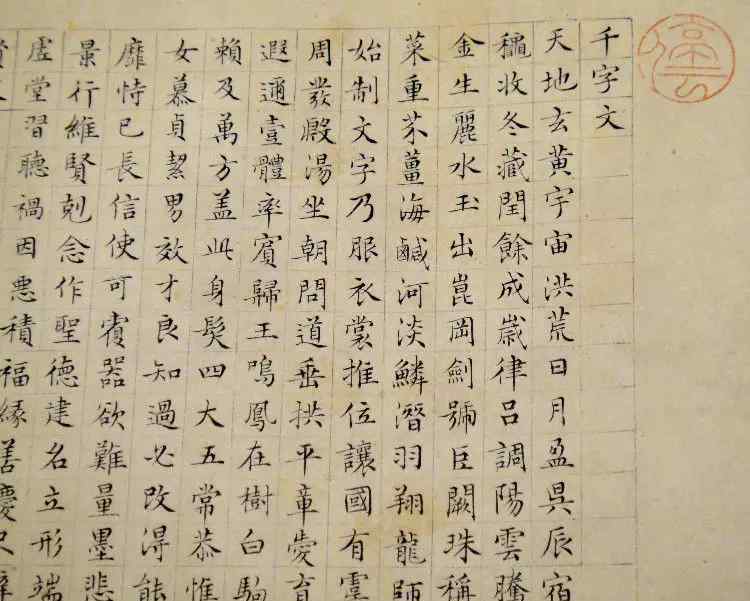 千字文
天地玄黃宇宙洪荒日月盈昃辰宿
龝收冬藏閏餘成歲律呂調陽雲騰
金生麗水玉出崑岡劍號巨闕珠稱
菜重芥薑海鹹河淡鱗潛羽翔龍師
始制文字乃服衣裳推位讓國有
周發殷湯坐朝問道垂拱平章愛育
遐邇壹體率賓歸王鳴鳳在樹白駒
賴及萬方蓋此身髮四大五常恭惟
女慕貞絜男效才良知過必改得能
靡恃己長信使可覆器欲難量墨悲
景行維賢剋念作聖德建名立形端
虛堂習聽禍因惡積福緣善慶尺